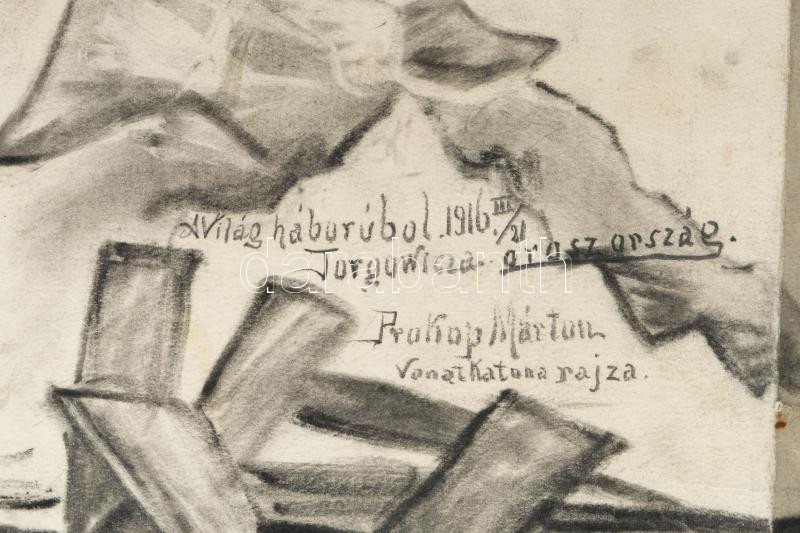 A Világháborúbol. 1916 III/21
Torgowicza. orosz ország.
Prokop Márton
Vonatkatona rajza.
darabanth